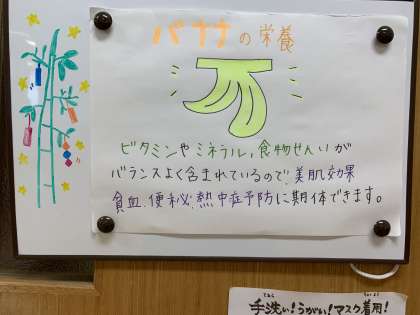 バナナの栄養
ビタミンやミネラル,食物せんいが
バランスよく含まれているので,美肌効果
貧血.便秘.熱中症予防に期体できます。
手洗い!うがい!マスク着用!